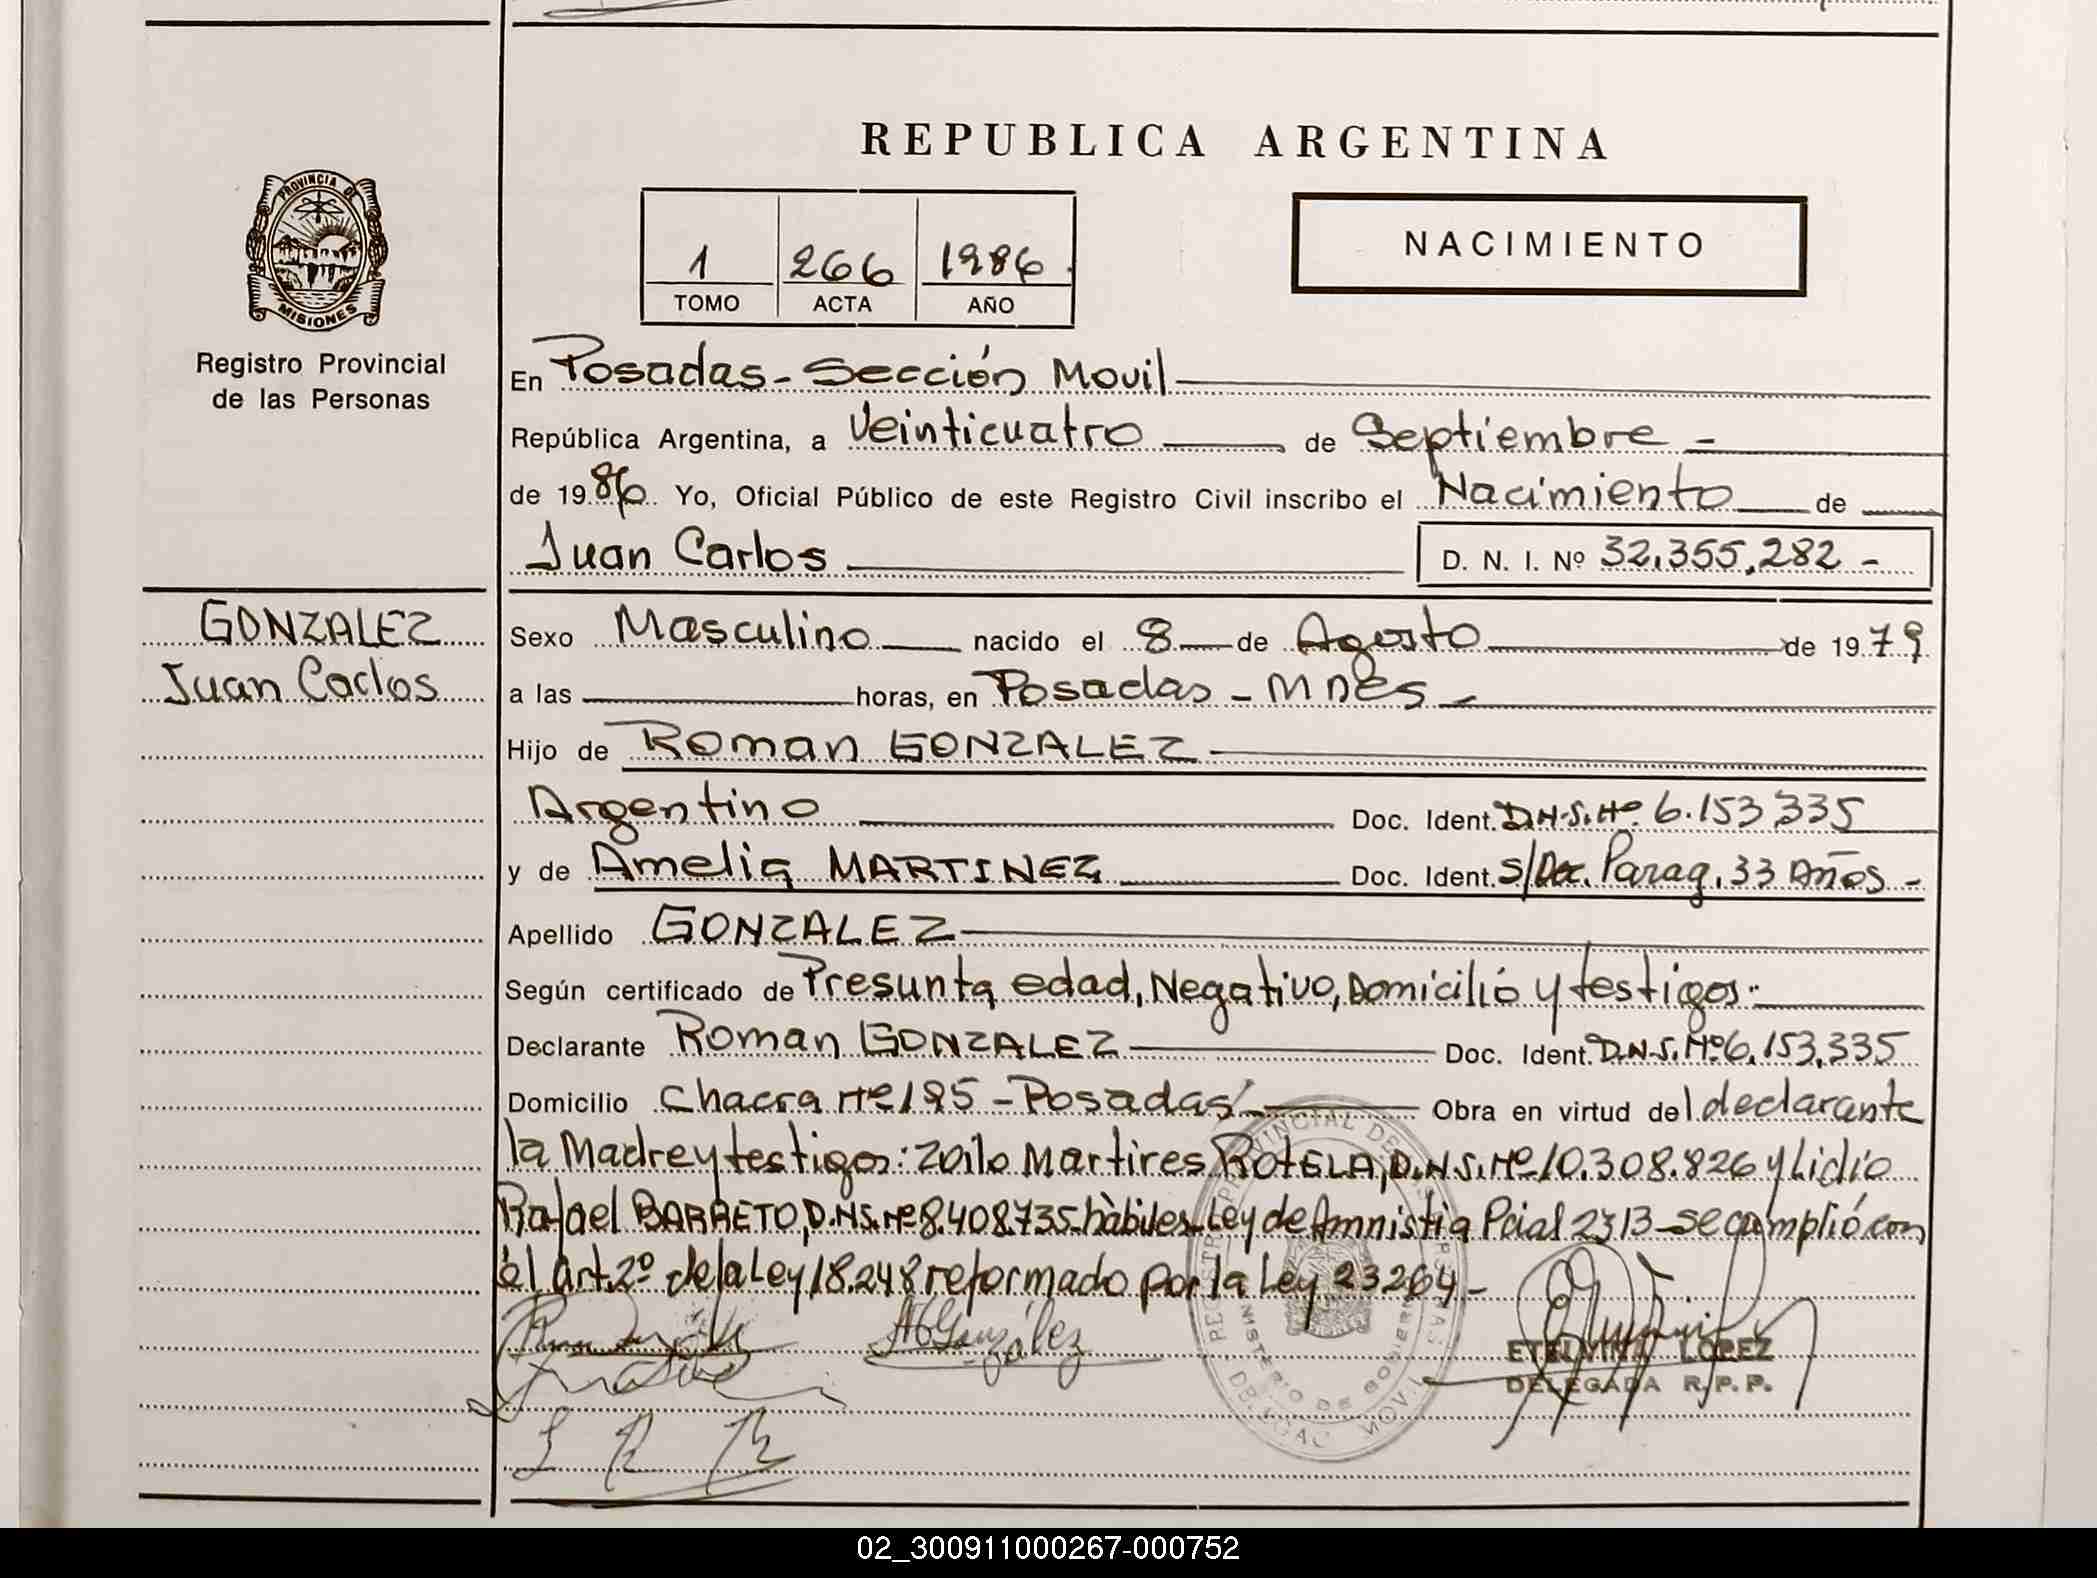 REPUBLICA ARGENTINA
PROVINCIA DE
MISIONES
Registro Provincial
de las Personas
1 266 1986
TOMO ACTA AÑO
NACIMIENTO
En Posadas - Sección Movil
República Argentina, a Veinticuatro de Septiembre -
de 1986 Yo, Oficial Público de este Registro Civil inscribo el Nacimiento de
Juan Carlos D. N. I. Nº 32.355.282 -
GONZALEZ
Juan Carlos
Sexo Masculino nacido el 8 de Agosto de 1979
a las horas, en Posadas - Mnes -
Hijo de Roman GONZALEZ
Argentino Doc. Ident. D.N.I. Nº 6.153.335
y de Amelia MARTINEZ Doc. Ident. S/Doc. Parag. 33 Años -
Apellido GONZALEZ
Según certificado de Presunta edad, Negativo, Domicilio y testigos.-
Declarante Roman GONZALEZ Doc. Ident. D.N.I. Nº 6.153.335
Domicilio Chacra Nº 195 - Posadas - Obra en virtud del declarante
la Madre y testigos: Zoilo Martires ROTELA, D.N.I. Nº 10.308.826 y Lidio
Rafael BARRETO, D.N.I. Nº 8.408.735 - hàbiles - Ley de Amnistia Pcial 2313 - se cumplió con
el art. 2º de la Ley 18.248 reformado por la Ley 23264 -
González
ETELVINA LOPEZ
DELEGADA R.P.P.
L R B
02_300911000267-000752